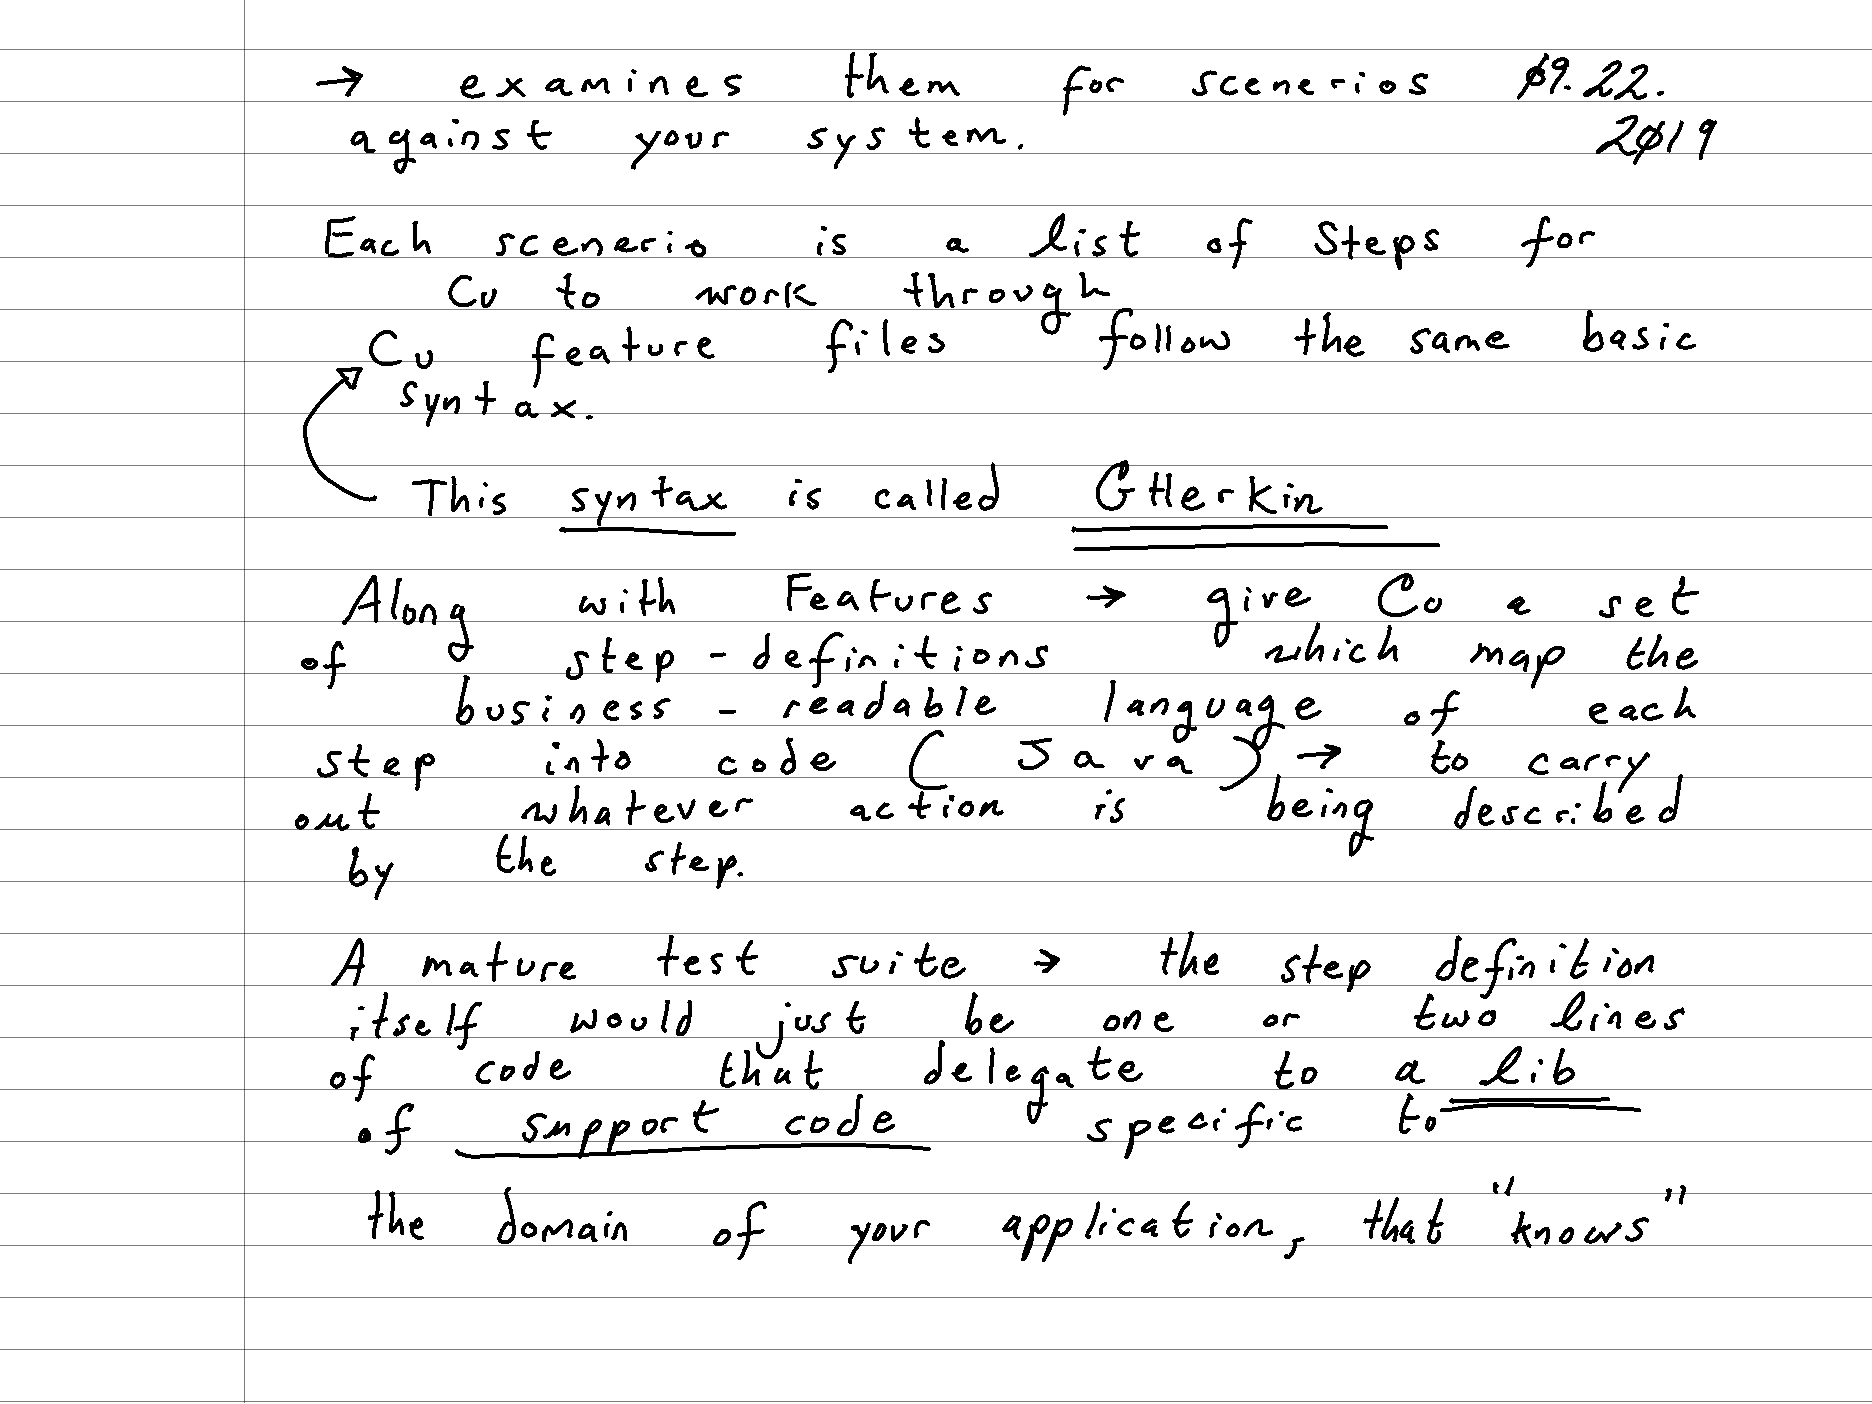 → examines them for scenerios 09.22.
against your system. 2019
Each scenerio is a list of Steps for
Cu to work through
Cu feature files follow the same basic
syntax.
This syntax is called GHerkin
Along with Features → give Cu a set
of step-definitions which map the
business-readable language of each
step into code (Java) → to carry
out whatever action is being described
by the step.
A mature test suite → the step definition
itself would just be one or two lines
of code that delegate to a lib
of support code specific to
the domain of your application, that "knows"